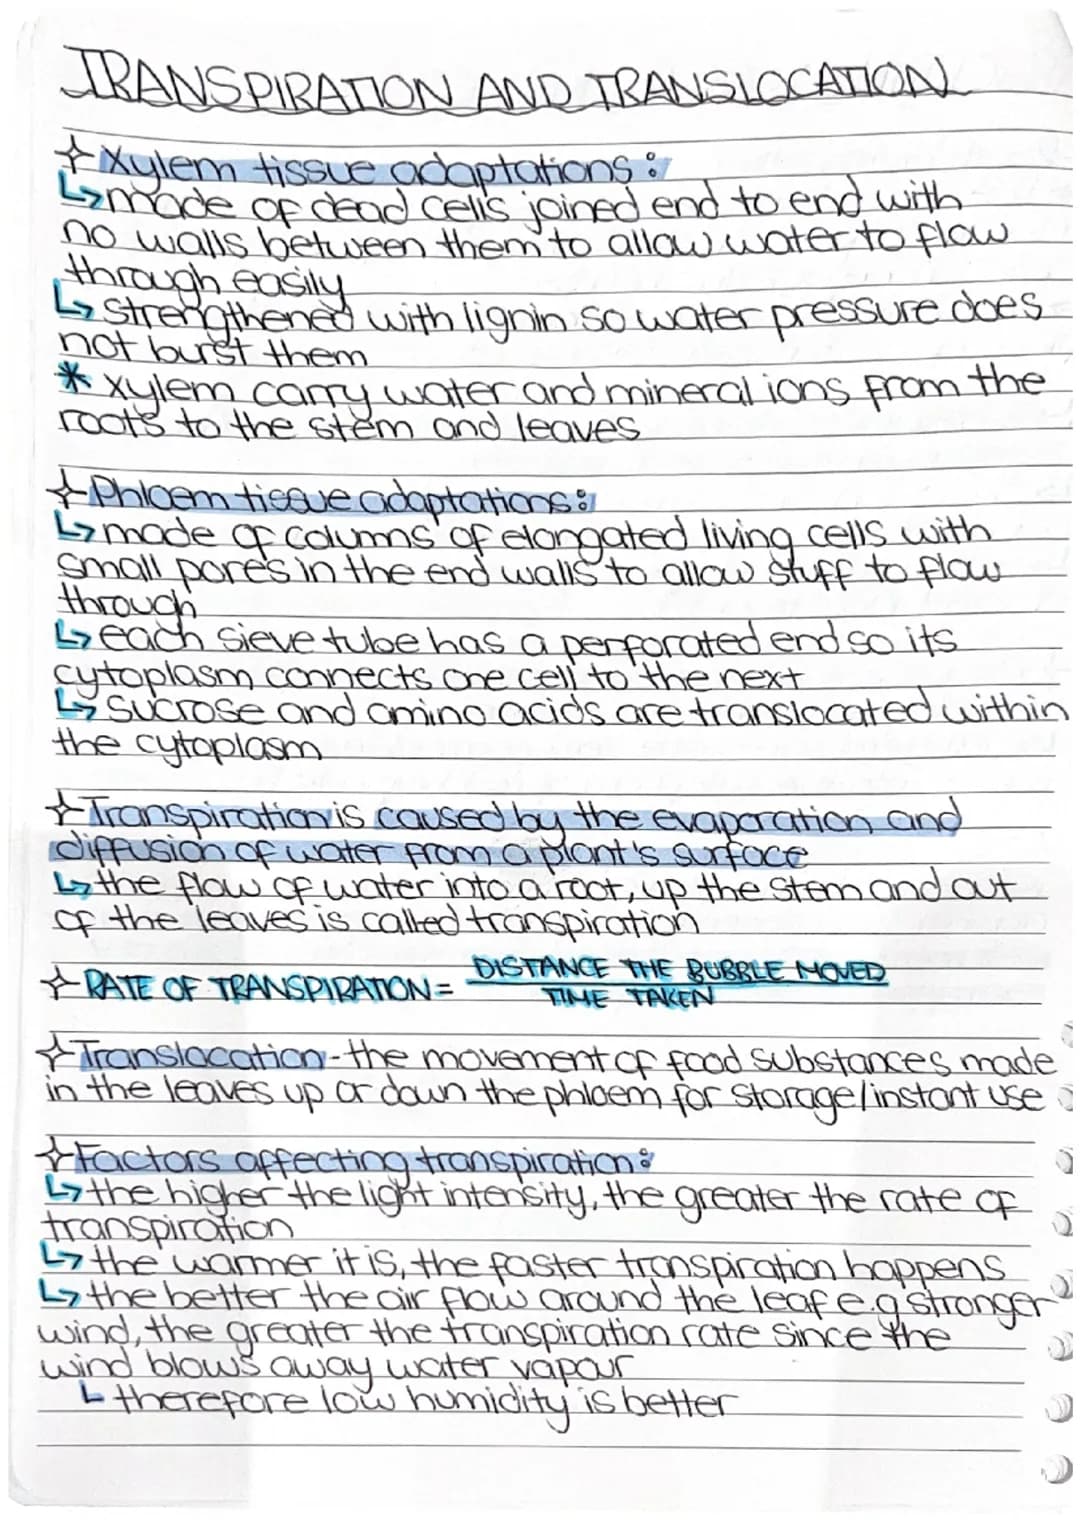 TRANSPIRATION AND TRANSLOCATION
Xylem tissue adaptations:
↳ made of dead cells joined end to end with
no walls between them to allow water to flow
through easily
↳ strengthened with lignin so water pressure does
not burst them
* xylem carry water and mineral ions from the
roots to the stem and leaves
Phloem tissue adaptations:
↳ made of colums of elongated living cells with
small pores in the end walls to allow stuff to flow
through
↳ each sieve tube has a perforated end so its
cytoplasm connects one cell to the next
↳ sucrose and amino acids are translocated within
the cytoplasm
Transpiration is caused by the evaporation and
diffusion of water from a plant's surface
↳ the flow of water into a root, up the stem and out
of the leaves is called transpiration
RATE OF TRANSPIRATION = DISTANCE THE BUBBLE MOVED
TIME TAKEN
Translocation - the movement of food substances made
in the leaves up or down the phloem for storage/instant use
Factors affecting transpiration:
↳ the higher the light intensity, the greater the rate of
transpiration
↳ the warmer it is, the faster transpiration happens
↳ the better the air flow around the leaf e.g stronger
wind, the greater the transpiration rate since the
wind blows away water vapour
↳ therefore low humidity is better